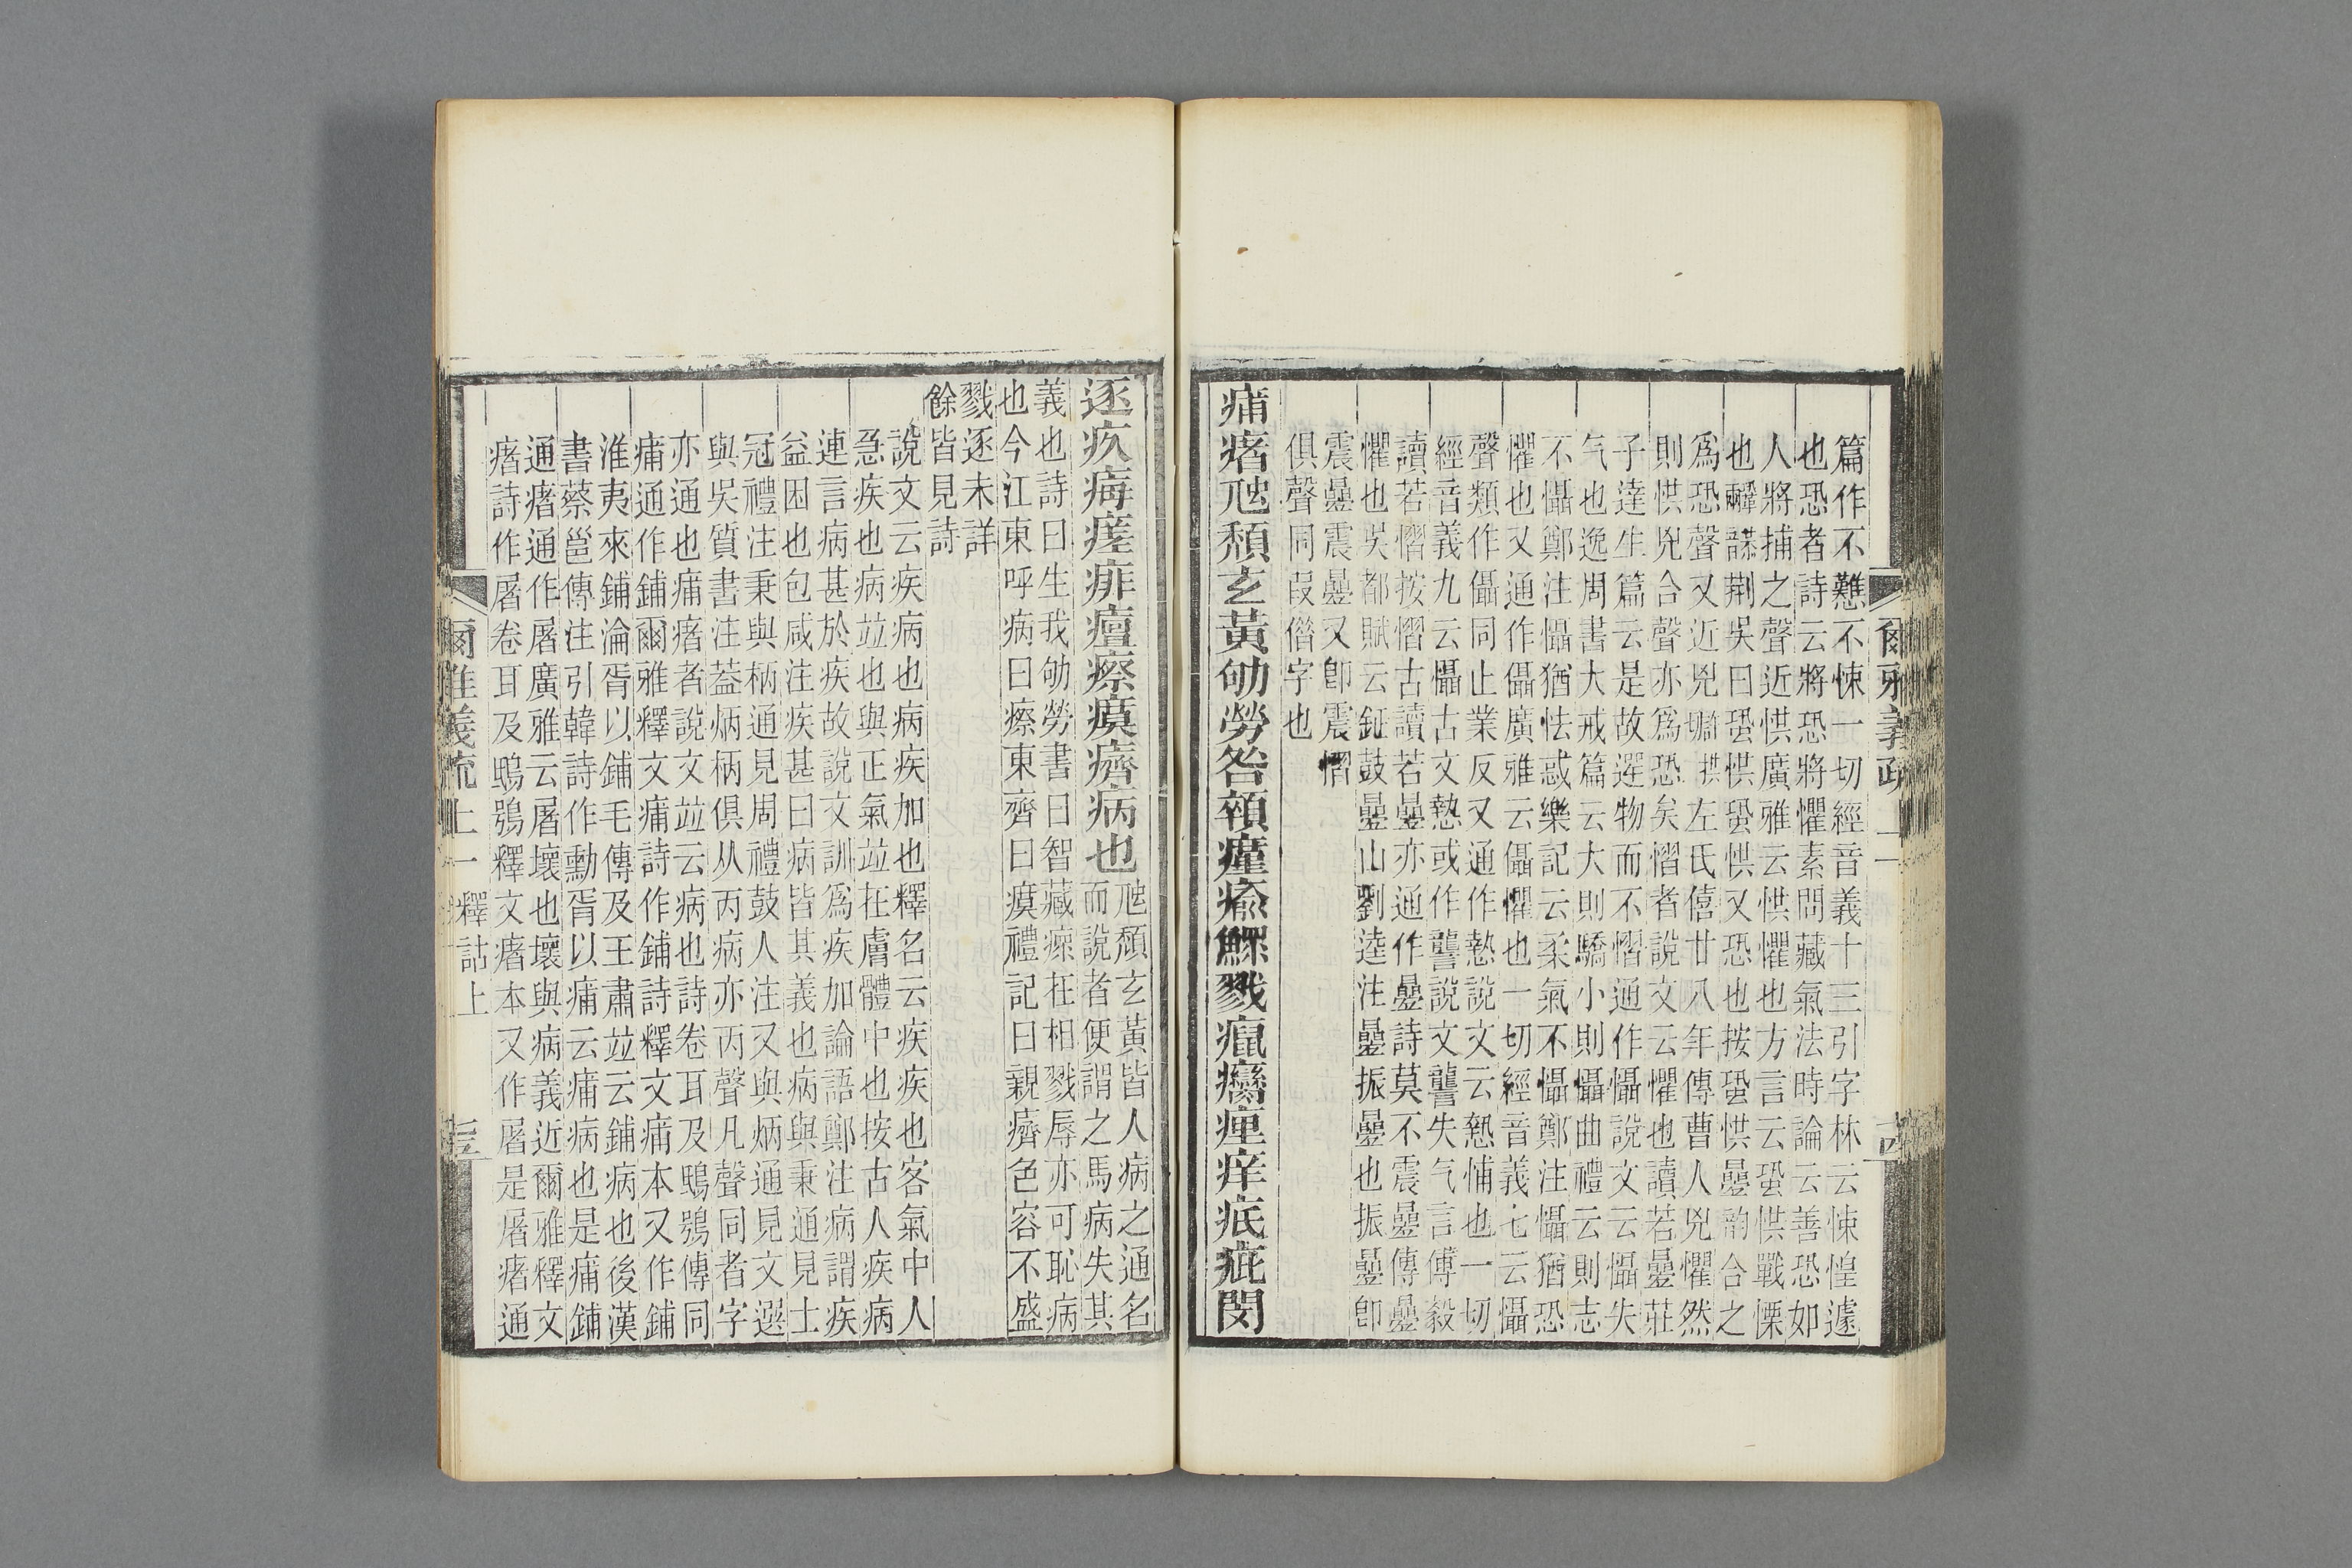 篇作不戁不悚一切經音義十三引字林云悚惶遽
也恐者詩云將恐將懼素問藏氣法時論云善恐如
人將捕之聲近恇廣雅云恇懼也方言云蛩恇戰慄
也荆吳曰蛩恇蛩恇又恐也按蛩恇疊韵合之
爲恐聲又近兇左氏僖廿八年傳曹人兇懼然
則恇兇合聲亦爲恐矣慴者說文云懼也讀若疊莊
子達生篇云是故遻物而不慴通作懾說文云懾失
气也逸周書大戒篇云大則驕小則懾曲禮云則志
不懾鄭注懾猶怯惑樂記云柔氣不懾鄭注懾猶恐
懼也又通作儡廣雅云儡懼也一切經音義七云懾
聲類作儡同止業反又通作慹說文云慹悑也一切
經音義九云懾古文慹或作讋說文讋失气言傅毅
讀若慴按慴古讀若疊亦通作疊詩莫不震疊傳疊
懼也吳都賦云鉦鼓疊山劉逵注疊振疊也振疊卽
震疊震疊又卽震慴
俱聲同叚僣字也
痡瘏虺頹玄黃劬勞咎顇瘽瘉鰥戮癙癵瘦痒疷疵閔
爾雅義疏 上一 古
逐疚痗瘥痱癉瘵瘼癠病也
虺頹玄黃皆人病之通名
而說者便謂之馬病失其
義也詩曰生我劬勞書曰智藏瘝在相戮辱亦可恥病
也今江東呼病曰瘵東齊曰瘼禮記曰親癠色容不盛
戮逐未詳
餘皆見詩
說文云疾病也病疾加也釋名云疾疾也客氣中人
急疾也病竝也與正氣竝在膚體中也按古人疾病
連言病甚於疾故說文訓爲疾加論語鄭注病謂疾
益困也包咸注疾甚曰病皆其義也病與秉通見士
冠禮注秉與柄通見周禮鼓人注又與炳通見文選
與吳質書注葢炳柄俱从丙病亦丙聲凡聲同者字
亦通也痡瘏者說文竝云病也詩卷耳及鴟鴞傳同
痡通作鋪爾雅釋文痡詩作鋪詩釋文痡本又作鋪
淮夷來鋪淪胥以鋪毛傳及王肅竝云鋪病也後漢
書蔡邕傳注引韓詩作勳胥以痡云痡病也是痡鋪
通瘏通作屠廣雅云屠壞也壞與病義近爾雅釋文
瘏詩作屠卷耳及鴟鴞釋文瘏本又作屠是屠瘏通
爾雅義疏 上一 釋詁上